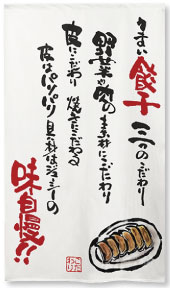 うまい餃子 三つのこだわり
野菜や肉の素材にこだわり
皮にこだわり 焼きにこだわる
皮はパリパリ 具材はジューシーの
味自慢!!
こだわり